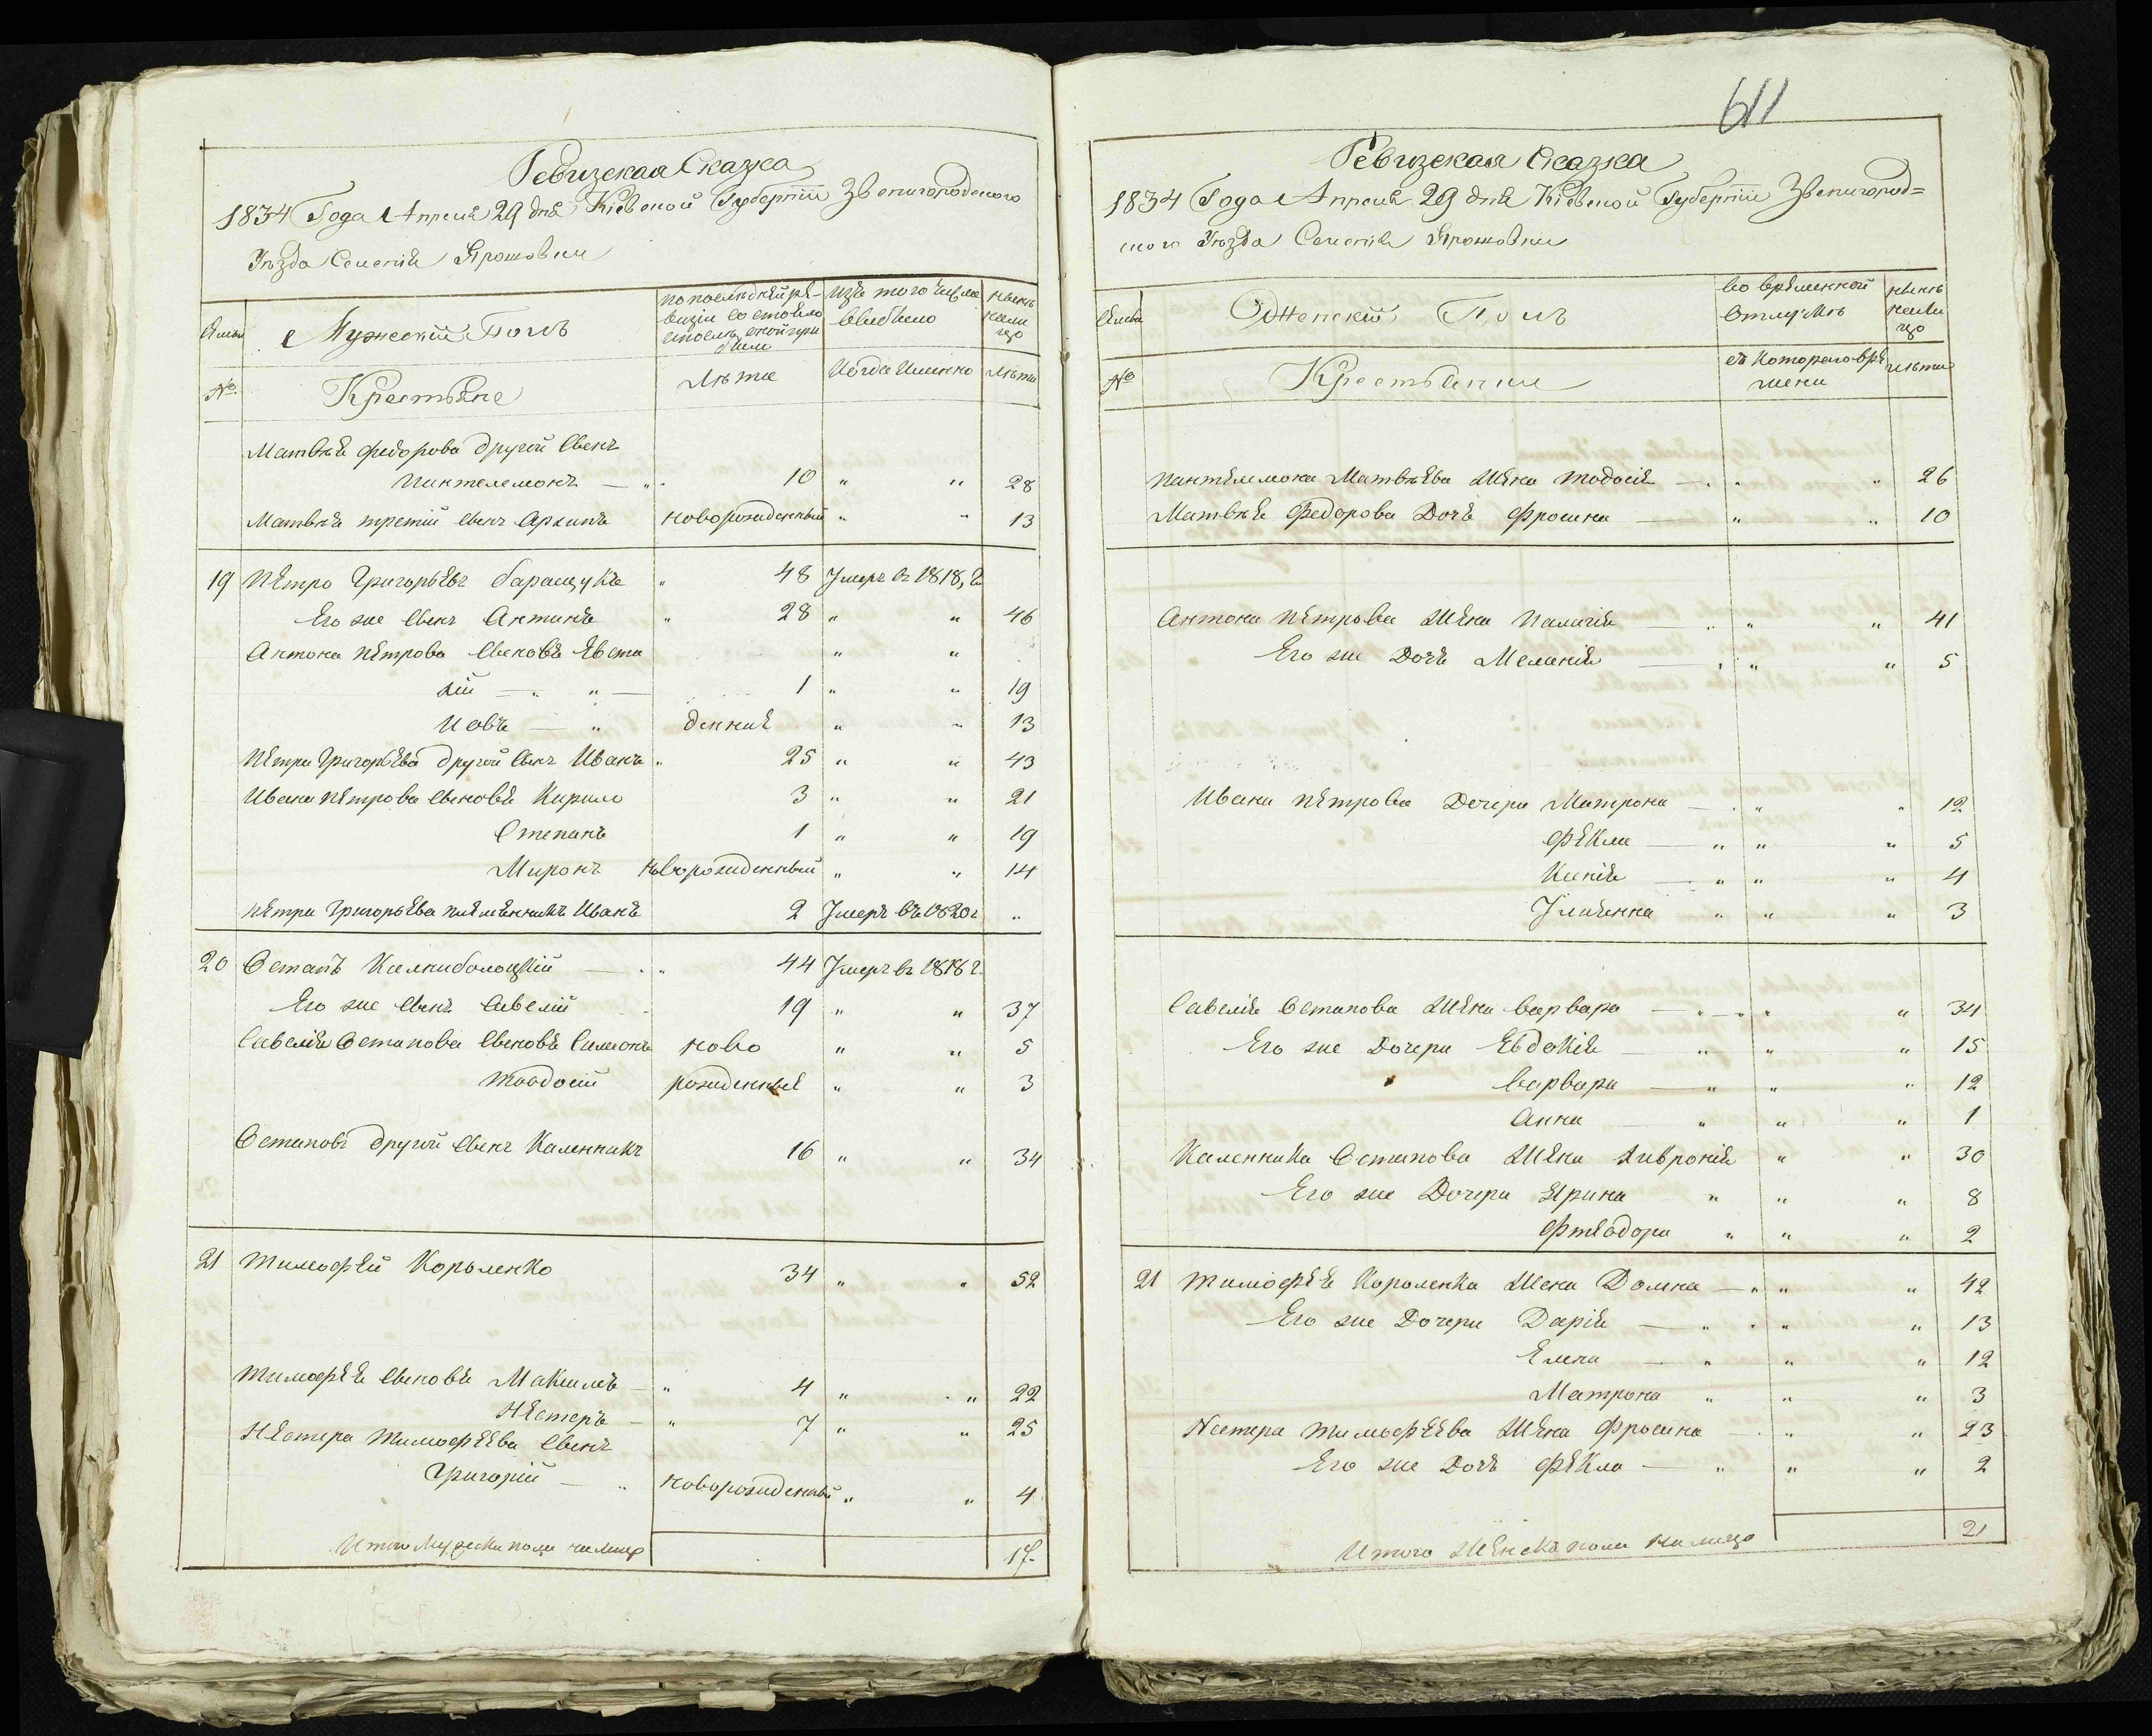 Ревизская Сказка
1834 Года Апреля 29 дня Кіевской Губерніи Звенигородского
Уезда Селенія Ярошовки
Мужескій Полъ
по последней ре-
визіи состояло
и после оной при
были
изъ того числа
выбыло
ныне
на ли
цо
№
Крестьяне
Лета
Когда Именно
Лета
Матвея Федорова другой Сынъ
Пантелемонъ — " 10 " " 28
Матвея третій Сынъ Архипъ новорожденный " " 13
19 Петро Григорьевъ баращукъ " 48 Умеръ въ 1818, г.
Его же Сынъ Антинъ " 28 " " 46
Антона Петрова Сыновья Евста
хій — " " — 1 " " 19
Иовъ — " денніе " " 13
Петра Григорьева другой Сынъ Иванъ " 25 " " 43
Ивана Петрова Сыновья Кирило 3 " " 21
Степанъ 1 " " 19
Миронъ Новорожденный " " 14
Петра Григорьева племенникъ Иванъ 2 Умеръ въ 1820 г "
20 Остапъ Калниболоцкій — " " 44 Умеръ въ 1818 г.
Его же Сынъ Савелій 19 " " 37
Савелія Остапова Сыновья Симионъ ново " " 5
Теодосій рожденные " " 3
Остаповъ другой Сынъ Каленникъ 16 " " 34
21 Тимофей Короленко 34 " " 52
Тимофея Сыновья Максимъ — " 4 " " 22
Нестеръ — " 7 " " 25
Нестера Тимофеева Сынъ
Григорій — " новорожденный " " 4
Итого Мужеска пола на лицо 17.
611
Ревизская Сказка
1834 Года Апреля 29 дня Кіевской Губерніи Звенигород=
ского Уезда Селенія Ярошовки
Женскій Полъ
во временной
отлучке
ныне
на ли
цо
№
Крестьянки
съ которого вре
мени
лета
Пантелемона Матвеева Жена Тодосія — " " " 26
Матвея Федорова Дочь Фросина — " " 10
Антона Петрова Жена Палагія — " " " 41
Его же Дочь Меланія — " " " 5
Ивана Петрова Дочери Матрона — " " " 12
Фекла — " " " 5
Ксенія — " " " 4
Улиянна " " " 3
Савелія Остапова Жена Варвара — " " " 34
Его же Дочери Евдокія — " " " 15
Варвара — " " " 12
Анна — " " " 1
Каленника Остапова Жена Хивронія " " 30
Его же Дочери Ярина " " " 8
Фтеодора " " " 2
21 Тимофея Короленка Жена Домна — " " " 42
Его же Дочери Дарія — " " " 13
Елена — " " " 12
Матрона " " " 3
Нестера Тимофеева Жена Фросина — " " " 23
Его же Дочь Фекла — " " " 2
Итого Женска пола на лицо 21